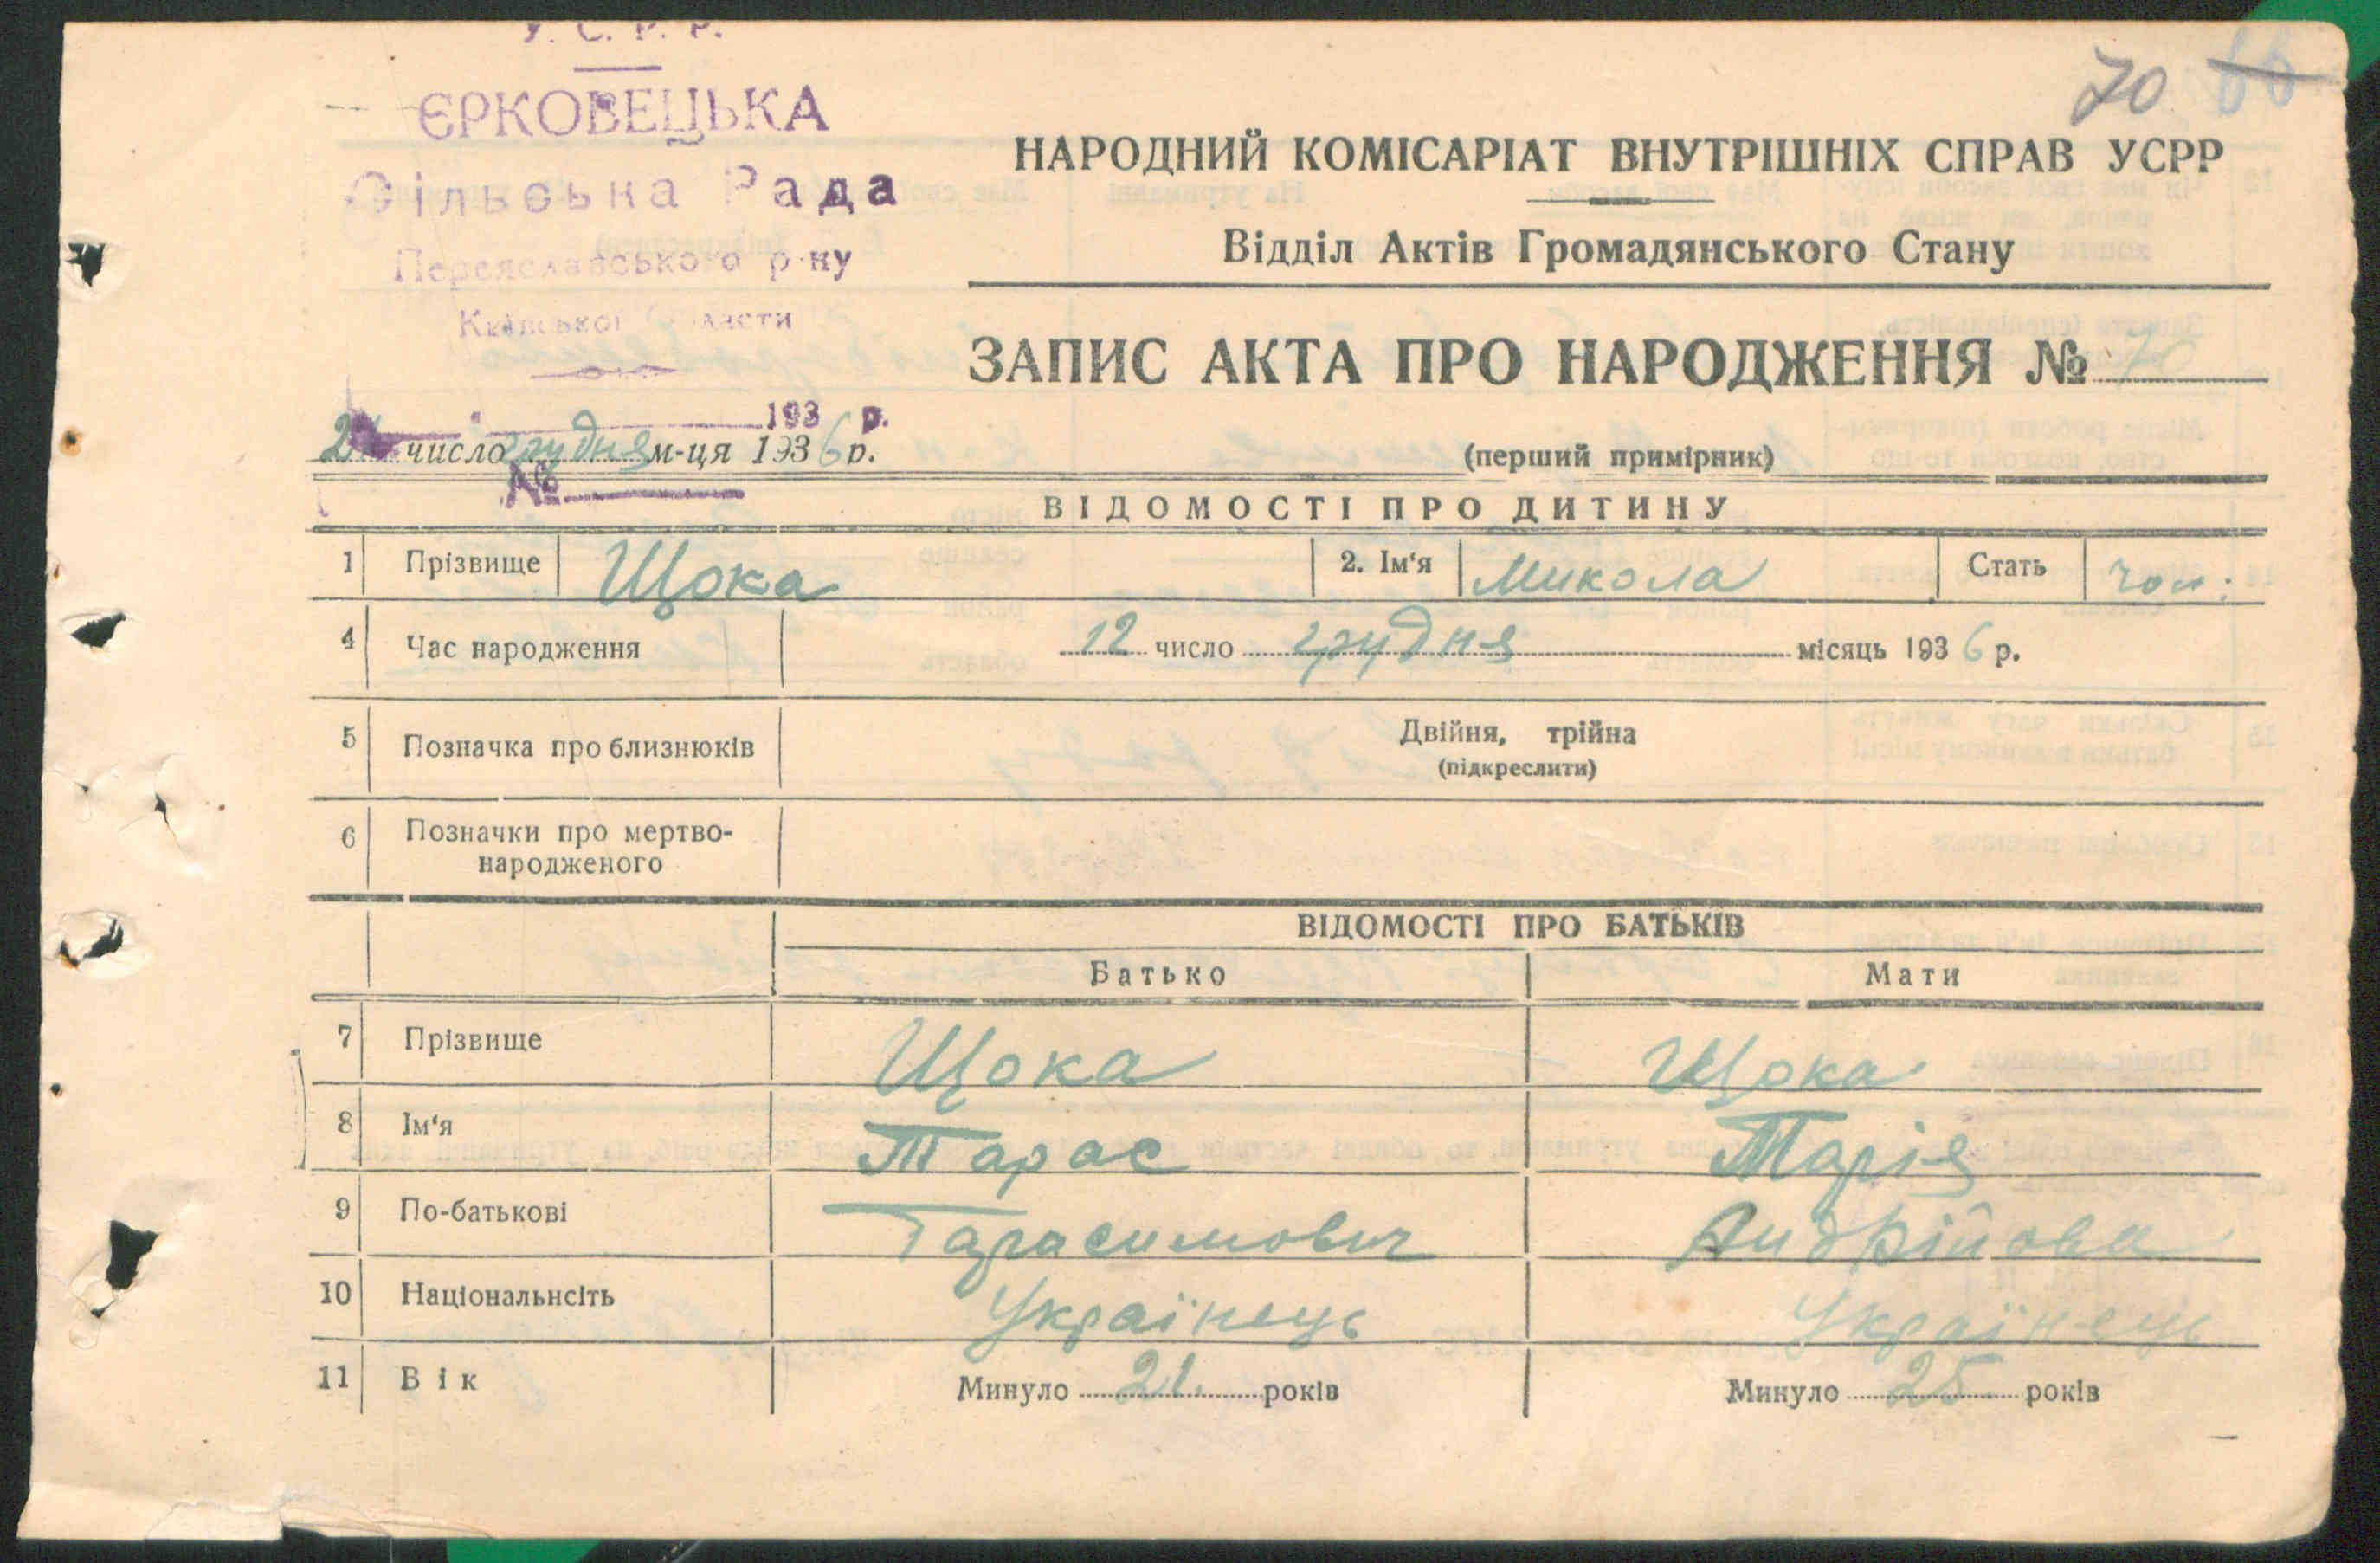 У. С. Р. Р.
ЄРКОВЕЦЬКА
Сільська Рада
Переяславського р-ну
Київської Області
193 р.
№
70 66
НАРОДНИЙ КОМІСАРІАТ ВНУТРІШНІХ СПРАВ УСРР
Відділ Актів Громадянського Стану
ЗАПИС АКТА ПРО НАРОДЖЕННЯ № 70
число грудня м-ця 1936 р.
(перший примірник)
ВІДОМОСТІ ПРО ДИТИНУ
1 Прізвище Щока 2. Ім'я Микола Стать чол.
4 Час народження 12 число грудня місяць 1936 р.
5 Позначка про близнюків Двійня, трійна
(підкреслити)
6 Позначки про мертво-
народженого
ВІДОМОСТІ ПРО БАТЬКІВ
Батько Мати
7 Прізвище Щока Щока
8 Ім'я Тарас Марія
9 По-батькові Гарасимович Андрійова
10 Національнсіть Українець Українець
11 Вік Минуло 21 років Минуло 25 років